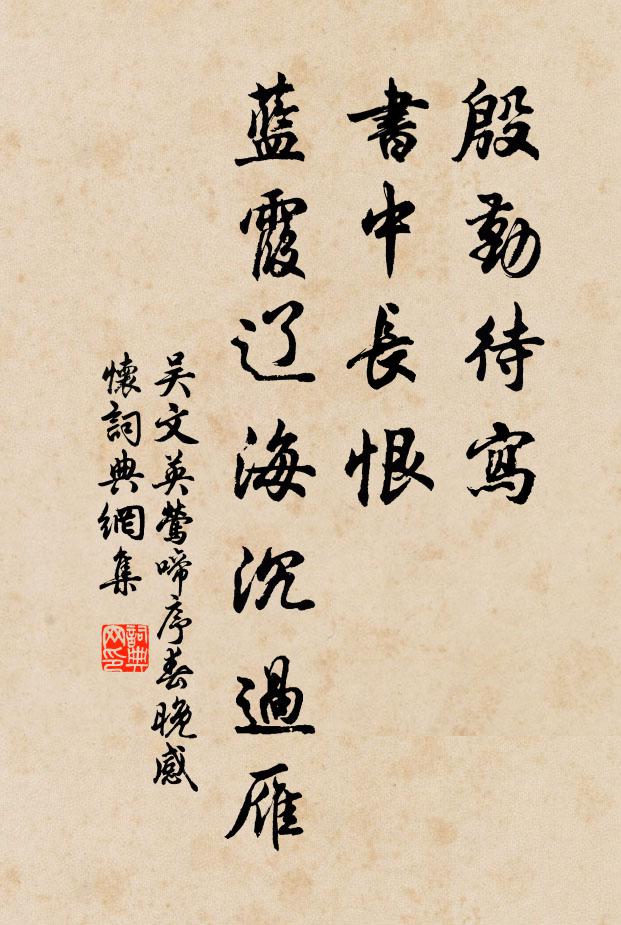 殷勤待寫
書中長恨
藍霞辽海沉過雁
吴文英鶯啼序春晚感
懷詞典網集
詞典
网印